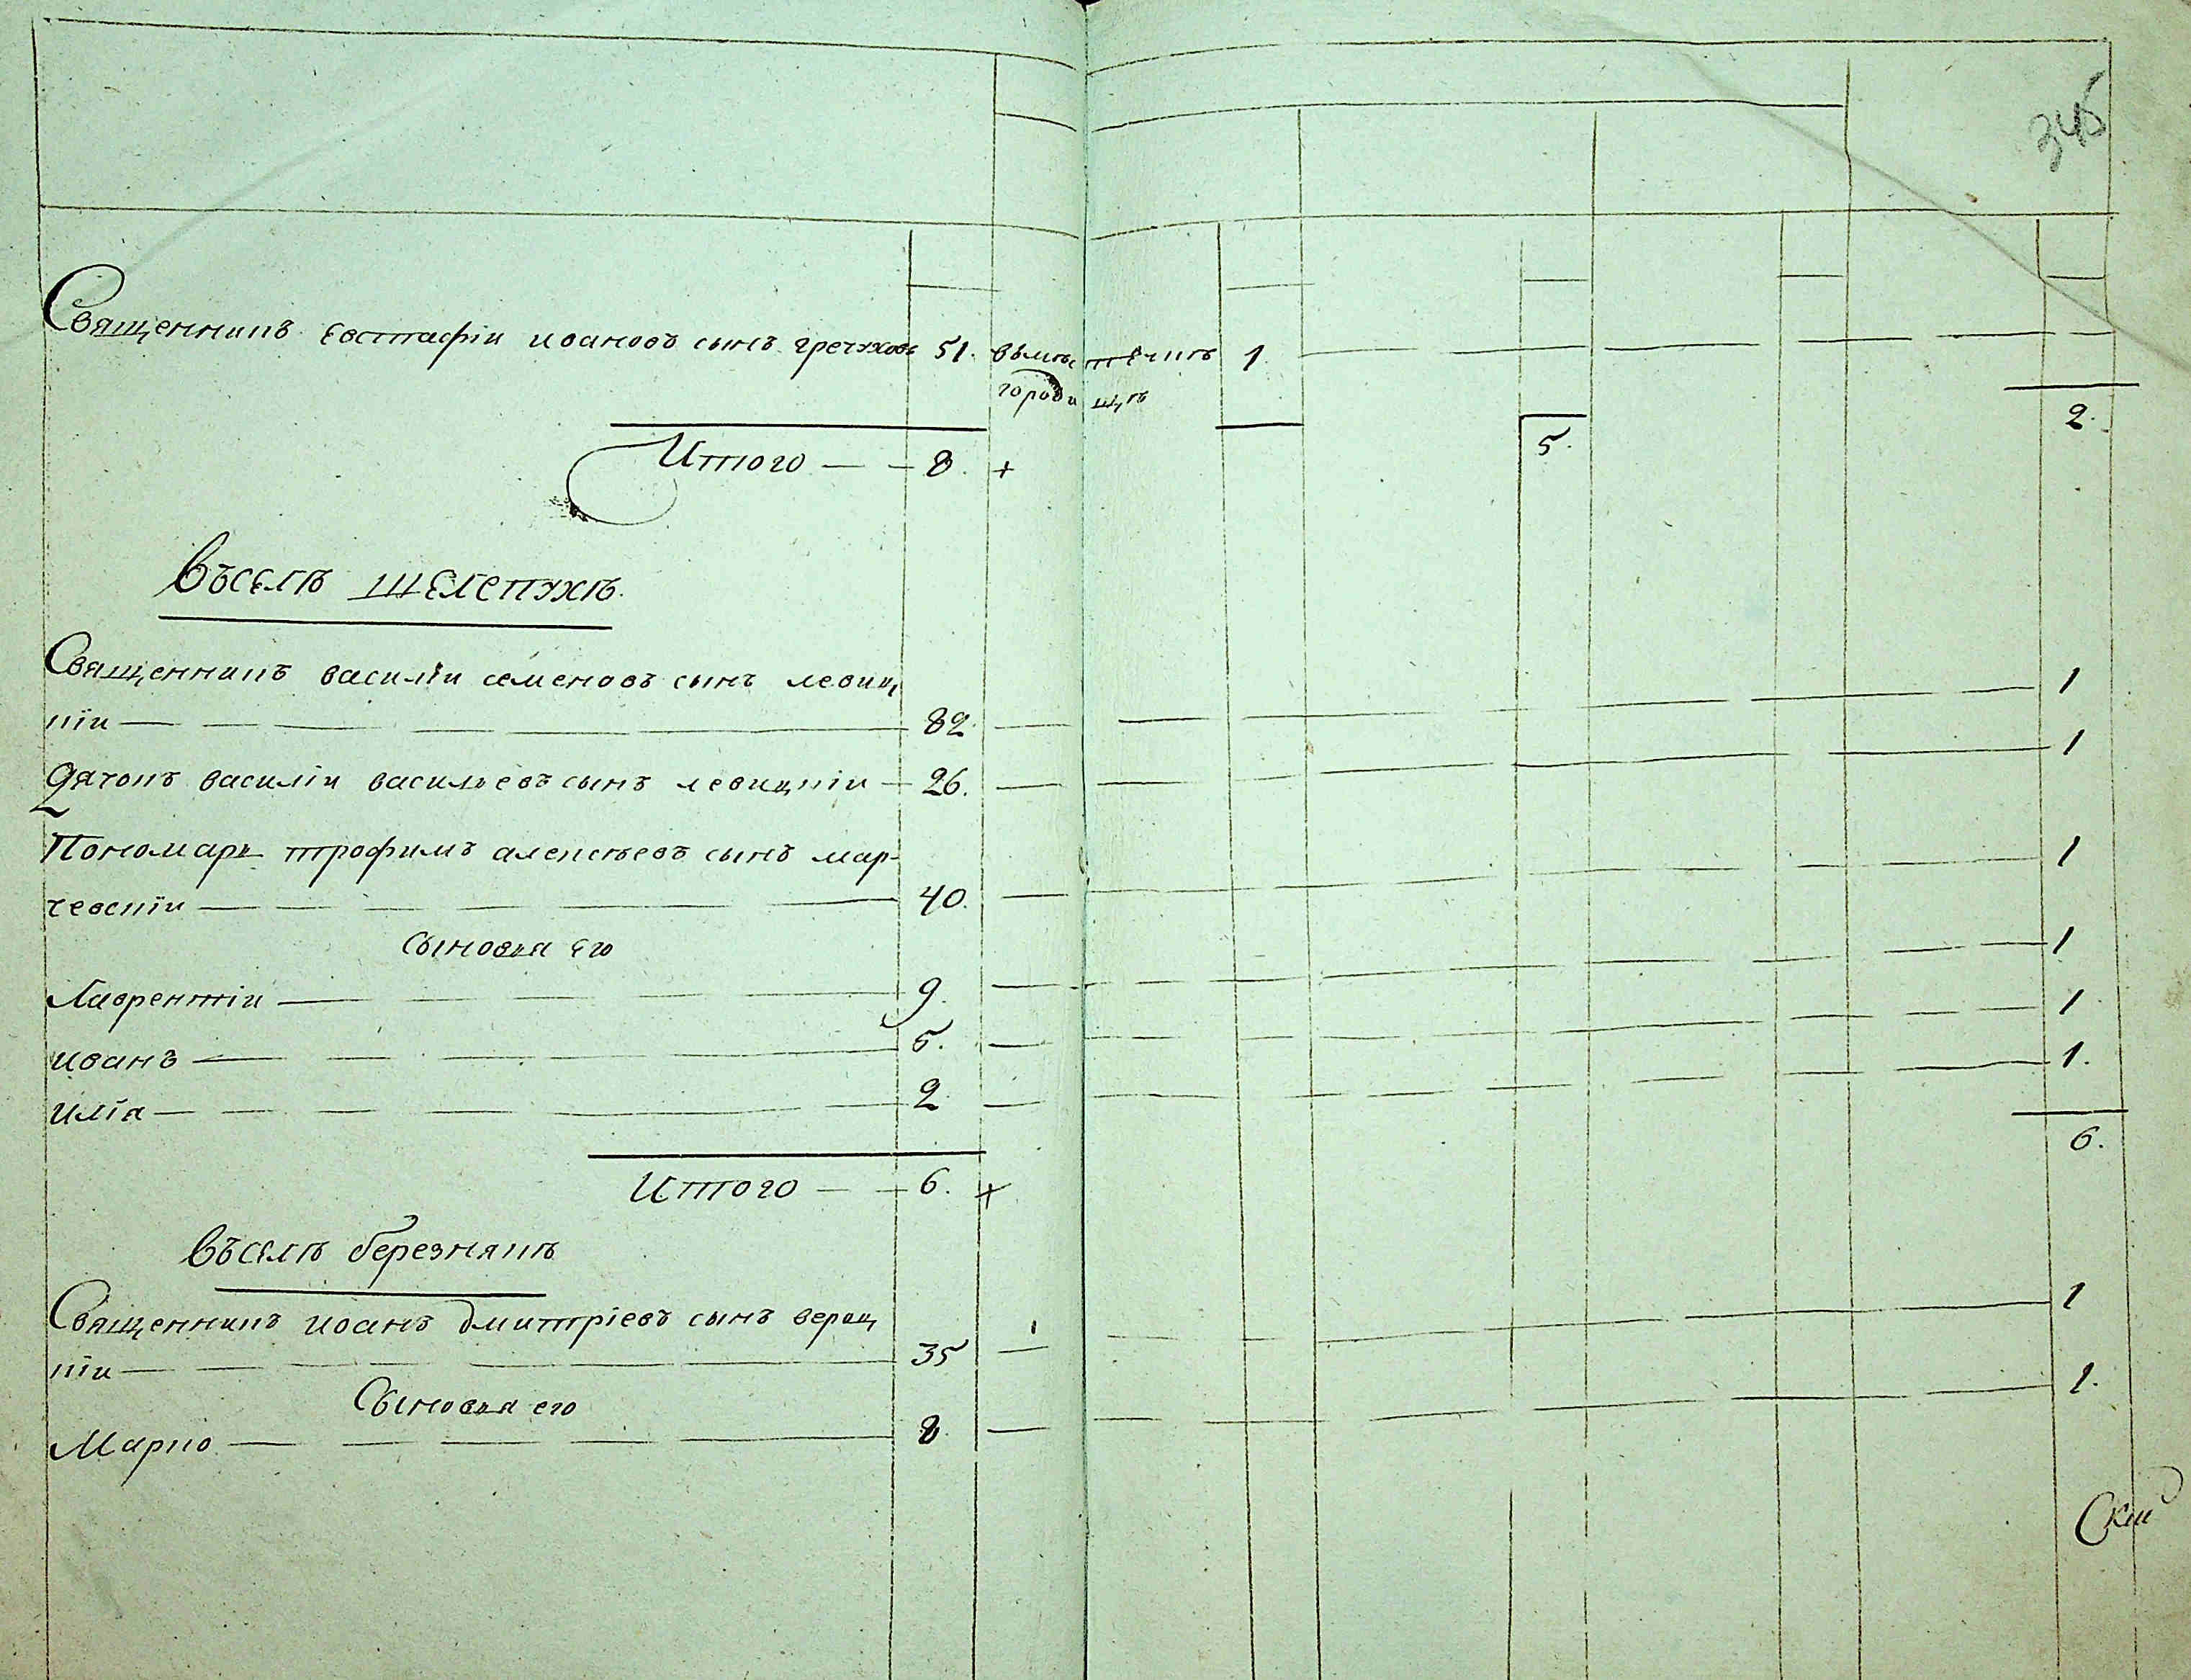 345
Священникъ Евстафіи ивановъ сынъ гречуховъ 51. въмѣстечкѣ 1.
городищѣ
2.
Итого — — 8. + 5.
Въселѣ шелепухѣ.
Священникъ василіи семеновъ сынъ левиц
кіи — 82. — 1
Дячокъ василіи васильевъ сынъ левицкіи — 26. — 1
Пономарь трофимъ алексѣевъ сынъ мар-
чевскіи — 40. — 1
Сыновья его
Лаврентіи — 9. — 1
иванъ — 5. — 1
илїа — 2 — 1.
6.
Итого — — 6. +
Въселѣ березнякѣ
Священникъ иоанъ дмитріевъ сынъ вериц
кіи — 35 — 1
Сыновья его
Марко — 8. — 1.